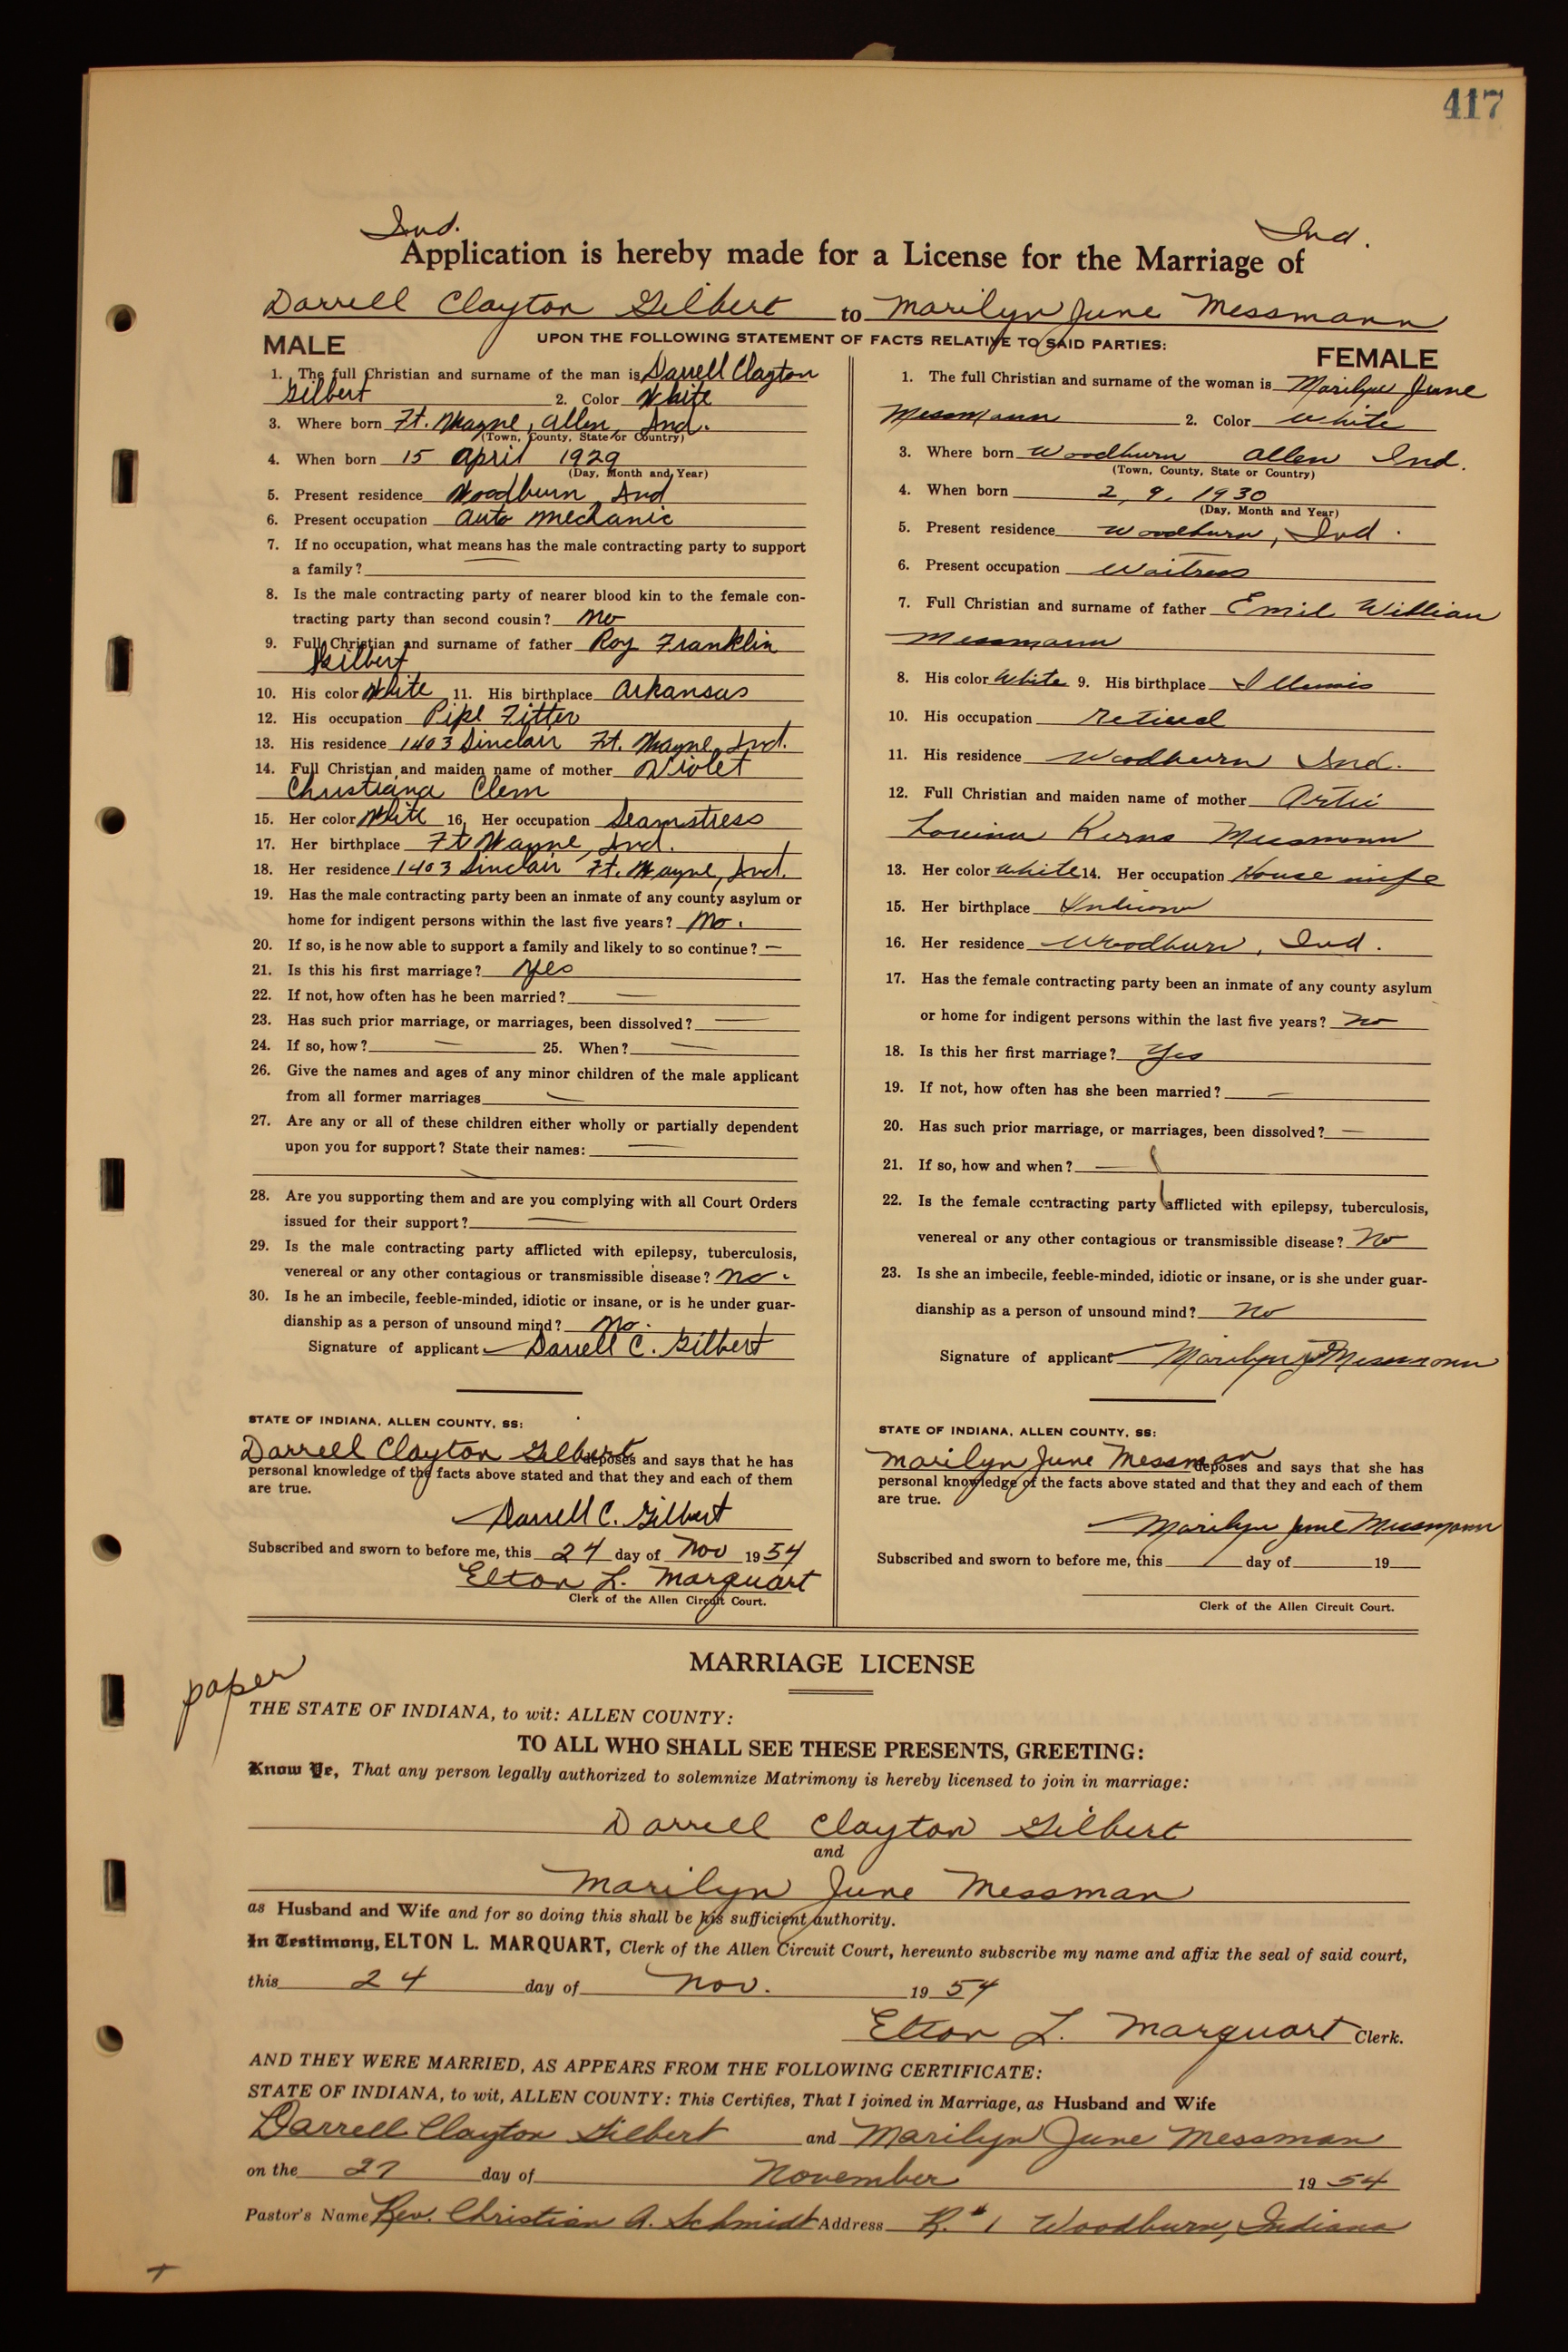 417
Ind. Ind.
Application is hereby made for a License for the Marriage of
Darrell Clayton Gilbert to Marilyn June Messmann
UPON THE FOLLOWING STATEMENT OF FACTS RELATIVE TO SAID PARTIES:
MALE
1. The full Christian and surname of the man is Darrell Clayton
Gilbert 2. Color White
3. Where born Ft. Wayne, Allen, Ind.
(Town, County, State or Country)
4. When born 15 April 1929
(Day, Month and Year)
5. Present residence Woodburn, Ind
6. Present occupation Auto Mechanic
7. If no occupation, what means has the male contracting party to support
a family? —
8. Is the male contracting party of nearer blood kin to the female con-
tracting party than second cousin? No
9. Full Christian and surname of father Roy Franklin
Gilbert
10. His color White 11. His birthplace Arkansas
12. His occupation Pipe Fitter
13. His residence 1403 Sinclair Ft. Wayne, Ind.
14. Full Christian and maiden name of mother Violet
Christiana Clem
15. Her color White 16. Her occupation Seamstress
17. Her birthplace Ft Wayne, Ind.
18. Her residence 1403 Sinclair Ft. Wayne, Ind.
19. Has the male contracting party been an inmate of any county asylum or
home for indigent persons within the last five years? No.
20. If so, is he now able to support a family and likely to so continue? —
21. Is this his first marriage? Yes
22. If not, how often has he been married? —
23. Has such prior marriage, or marriages, been dissolved? —
24. If so, how? — 25. When? —
26. Give the names and ages of any minor children of the male applicant
from all former marriages —
27. Are any or all of these children either wholly or partially dependent
upon you for support? State their names: —
—
28. Are you supporting them and are you complying with all Court Orders
issued for their support? —
29. Is the male contracting party afflicted with epilepsy, tuberculosis,
venereal or any other contagious or transmissible disease? No.
30. Is he an imbecile, feeble-minded, idiotic or insane, or is he under guar-
dianship as a person of unsound mind? No.
Signature of applicant Darrell C. Gilbert
STATE OF INDIANA, ALLEN COUNTY, SS:
Darrell Clayton Gilbert deposes and says that he has
personal knowledge of the facts above stated and that they and each of them
are true.
Darrell C. Gilbert
Subscribed and sworn to before me, this 24 day of Nov 1954
Elton L. Marquart
Clerk of the Allen Circuit Court.
FEMALE
1. The full Christian and surname of the woman is Marilyn June
Messmann 2. Color White
3. Where born Woodburn Allen Ind.
(Town, County, State or Country)
4. When born 2, 9, 1930
(Day, Month and Year)
5. Present residence Woodburn, Ind.
6. Present occupation Waitress
7. Full Christian and surname of father Emil William
Messmann
8. His color White 9. His birthplace Illinois
10. His occupation Retired
11. His residence Woodburn Ind.
12. Full Christian and maiden name of mother Artie
Louina Kerns Messmann
13. Her color White 14. Her occupation House wife
15. Her birthplace Indiana
16. Her residence Woodburn, Ind.
17. Has the female contracting party been an inmate of any county asylum
or home for indigent persons within the last five years? No
18. Is this her first marriage? Yes
19. If not, how often has she been married? —
20. Has such prior marriage, or marriages, been dissolved? —
21. If so, how and when? —
22. Is the female contracting party afflicted with epilepsy, tuberculosis,
venereal or any other contagious or transmissible disease? No
23. Is she an imbecile, feeble-minded, idiotic or insane, or is she under guar-
dianship as a person of unsound mind? No
Signature of applicant Marilyn J Messmann
STATE OF INDIANA, ALLEN COUNTY, SS:
Marilyn June Messman deposes and says that she has
personal knowledge of the facts above stated and that they and each of them
are true.
Marilyn June Messmann
Subscribed and sworn to before me, this day of 19
Clerk of the Allen Circuit Court.
MARRIAGE LICENSE
paper
THE STATE OF INDIANA, to wit: ALLEN COUNTY:
TO ALL WHO SHALL SEE THESE PRESENTS, GREETING:
Know Ye, That any person legally authorized to solemnize Matrimony is hereby licensed to join in marriage:
Darrell Clayton Gilbert
and
Marilyn June Messman
as Husband and Wife and for so doing this shall be his sufficient authority.
In Testimony, ELTON L. MARQUART, Clerk of the Allen Circuit Court, hereunto subscribe my name and affix the seal of said court,
this 24 day of Nov. 1954
Elton L. Marquart Clerk.
AND THEY WERE MARRIED, AS APPEARS FROM THE FOLLOWING CERTIFICATE:
STATE OF INDIANA, to wit, ALLEN COUNTY: This Certifies, That I joined in Marriage, as Husband and Wife
Darrell Clayton Gilbert and Marilyn June Messman
on the 27 day of November 1954
Pastor's Name Rev. Christian A. Schmidt Address R. #1 Woodburn, Indiana